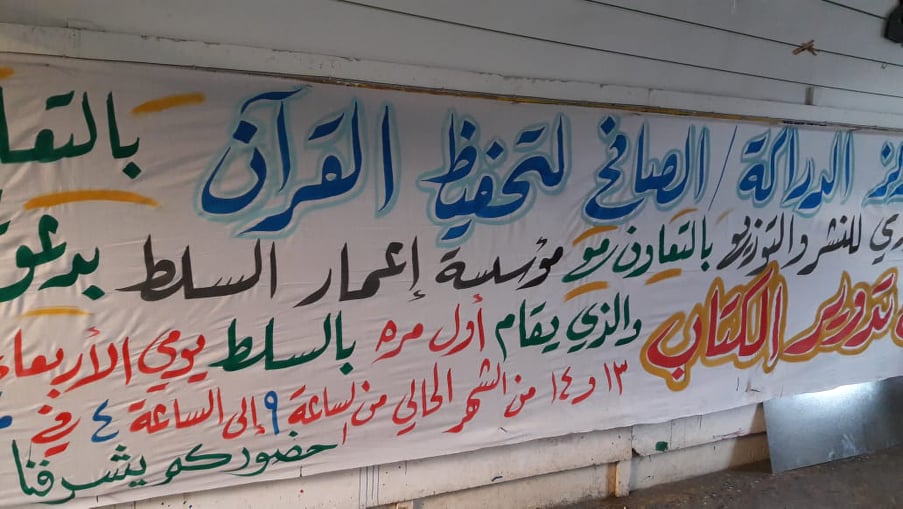 الدراكة / الصافح لتحفيظ القرآن بالتعا
للنشر والتوزيع بالتعاون مع مؤسسة إعمار السلط بدعو
تدوير الكتاب والذي يقام أول مره بالسلط يومي الأربعاء
١٣ و ١٤ من الشهر الحالي من لساعة ٩ إلى الساعة ٤ في
احضوركم يشرفنا